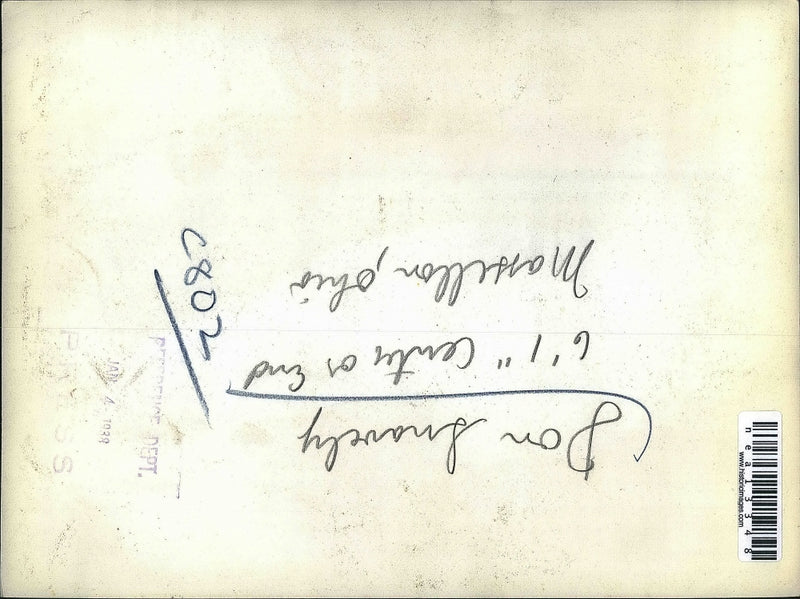 Don Snavely
6'1" Center or End
Massellon, Ohio
C802
REFERENCE DEPT.
JAN 4 1938
PRESS
nea13348
www.historicimages.com